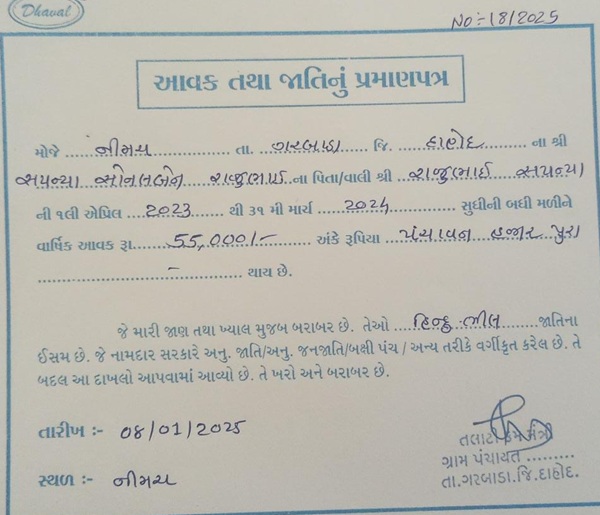 Dhaval
No:- 18/2025
આવક તથા જાતિનું પ્રમાણપત્ર
મોજે ...નીમચ... તા. ગરબાડા જિ. ...દાહોદ... ના શ્રી
બાયન્યા સોનલબેન રાજુભાઈ ના પિતા/વાલી શ્રી રાજુભાઈ બાયન્યા
ની ૧લી એપ્રિલ ...2023... થી ૩૧ મી માર્ચ ...2024... સુધીની બધી મળીને
વાર્ષિક આવક રૂા. 55,000/- અંકે રૂપિયા પંચાવન હજાર પુરા
- થાય છે.
જે મારી જાણ તથા ખ્યાલ મુજબ બરાબર છે. તેઓ ...હિન્દુ ભીલ... જાતિના
ઈસમ છે. જે નામદાર સરકારે અનુ. જાતિ/અનુ. જનજાતિ/બક્ષી પંચ / અન્ય તરીકે વર્ગીકૃત કરેલ છે. તે
બદલ આ દાખલો આપવામાં આવ્યો છે. તે ખરો અને બરાબર છે.
તારીખ :- 08/01/2025
તલાટી કમ મંત્રી
ગ્રામ પંચાયત .........
સ્થળ :- નીમચ
તા.ગરબાડા.જિ.દાહોદ.